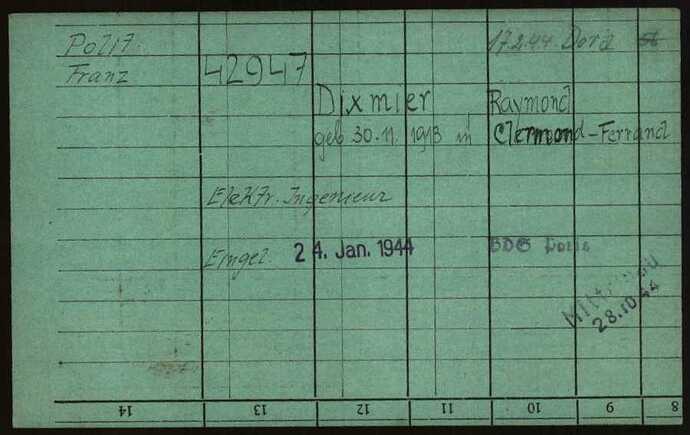 Polit. 17.2.44 Dora
Franz 42947
Dixmier Raymond
geb 30.11.1913 in Clermond-Ferrand
Elektr. Ingenieur
Eingel. 24. Jan. 1944 BDS Paris
Mittelbau
28.10.44
14 13 12 11 10 9 8